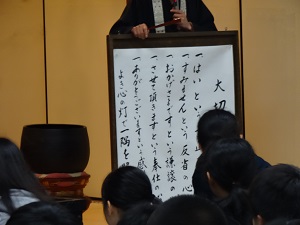 大切
一はいとい
一すみませんという反省の心
一おかげさまですという謙譲の
一させて頂きますという奉仕の
一ありがとうございますという感
よき心の灯で一隅を照